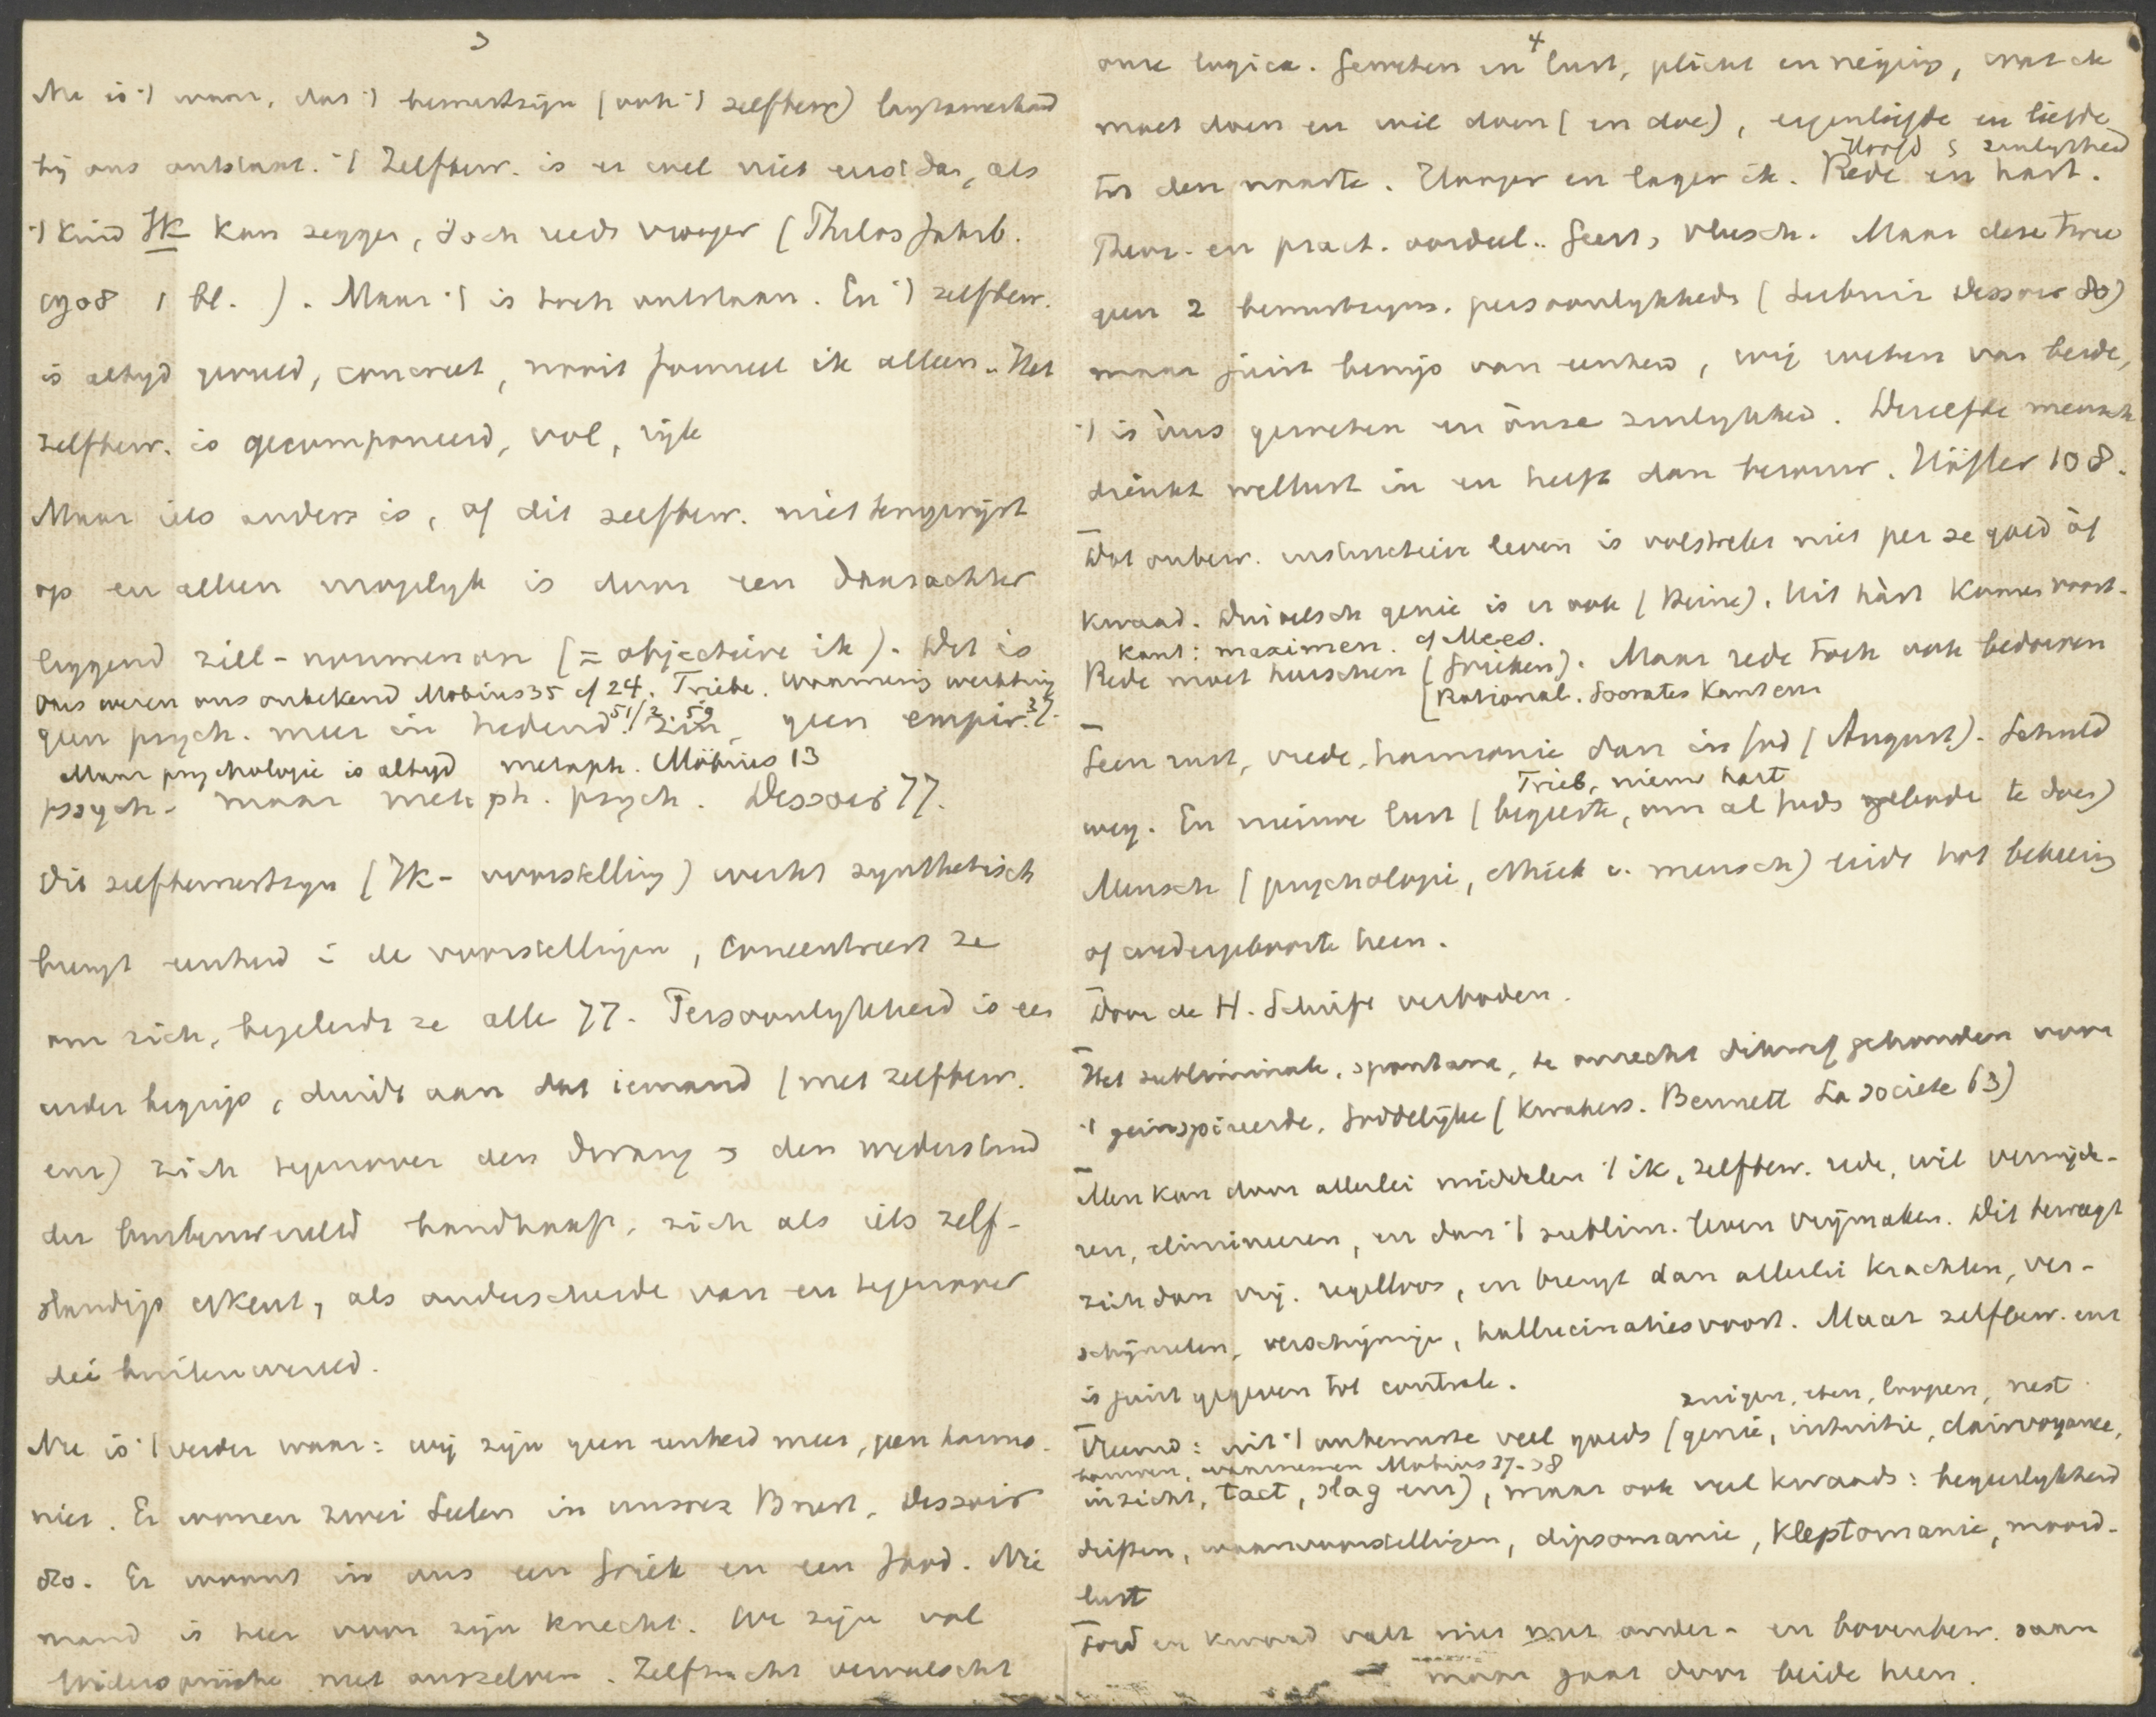 3
Nu is 't waar, dat 't bewustzijn (ook 't zelfbew) langzamerhand
bij ons ontstaat. 't Zelfbew. is er wel niet eerst dan, als
't kind Ik kan zeggen, doch reeds vroeger (Philos Jahrb.
1908 1 bl. ). Maar 't is toch ontstaan. En 't zelfbew.
is altyd gevuld, concreet, nooit formeel ik alleen. Het
zelfbew. is gecomponeerd, vol, rijk
Maar iets anders is, of dit zelfbew. niet terugwijst
op en alleen mogelyk is door een daarachter
liggend ziel-noumenon (= objectieve ik). Dit is
Ons wezen ons onbekend Möbius 35 cf 24. Triebe. Waarneming werking
51/2 59 37.
geen psych. meer in hedend. zin, geen empir.
Maar psychologie is altyd metaph. Möbius 13
psych- maar metaph. psych. Dessoir 77.
Dit zelfbewustzyn (Ik-voorstelling) werkt synthetisch
brengt eenheid i de voorstellingen, concentreert ze
om zich, begeleidt ze alle 77. Persoonlykheid is een
ander begrip, duidt aan dat iemand (met zelfbew.
enz) zich tegenover den drang en den wederstand
der buitenwereld handhaaft, zich als iets zelf-
standigs erkent, als onderscheide van en tegenover
die buitenwereld.
Nu is 't verder waar: wij zijn geen eenheid meer, geen harmo-
nie. Er wonen zwei Seelen in unsrer Brust. Dessoir
80. Er woont in ons een Griek en een Jood. Nie
mand is heer voor zijn knecht. We zijn vol
Widersprüche met onszelven. Zelfzucht vervalscht
4
onze logica. Geweten en lust, plicht en neiging, wat ik
moet doen en wil doen (en doe), eigenliefde en liefde
tot den naaste. Hooger en lager ik. Rede en hart.
Hoofd en zinlykheid
Theor. en pract. oordeel. Geest, vleesch. Maar deze twee
geen 2 bewustzyns. persoonlykheden (Leibniz Dessoir 80)
maar juist bewijs van eenheid, wij weten van beide,
't is ons geweten en onze zinlykheid. Dezelfde mensch
drinkt wellust in en heeft dan berouw. Höfler 108.
Dat onbew. instinctieve leven is volstrekt niet per se goed of
kwaad. Duivelsch genie is er ook (Heine). Uit hart komen voort.
Kant: maximen. cf Mees.
Rede moet heerschen (Grieken). Maar rede toch ook bedorven
[Rational. Socrates Kant enz
Geen rust, vrede, harmonie dan in God (August). Schuld
Trieb, nieuw hart
weg. En nieuwe lust (begeerte, om al Gods geboden te doen)
Mensch (psychologie, ethiek v. mensch) leidt tot bekeering
of wedergeboorte heen.
Door de H. Schrift verboden.
Het subliminale, spontane, te onrecht dikwerf gehouden voor
't geinspireerde, Goddelijke (Kwakers. Bennett La société 63)
Men kan door allerlei middelen 't ik, zelfbew. rede, wil verwijde-
ren, elimineeren, en dan 't sublim. leven vrijmaken. Dit beweegt
zich dan vrij, regelloos, en brengt dan allerlei krachten, ver-
schijnselen, verschijninge, hallucinaties voort. Maar zelfbew. enz
is juist gegeven tot controle.
zuigen, eten, loopen, nest
Vreemd: uit 't onbewuste veel goeds (genie, intuitie, clairvoyance,
bouwen, waarnemen Möbius 37-38
inzicht, tact, slag enz), maar ook veel kwaads: begeerlykheid
driften, waanvoorstellingen, dipsomanie, kleptomanie, moord-
lust
Goed en kwaad valt niet met onder- en bovenbew. saam
maar gaat door beide heen.